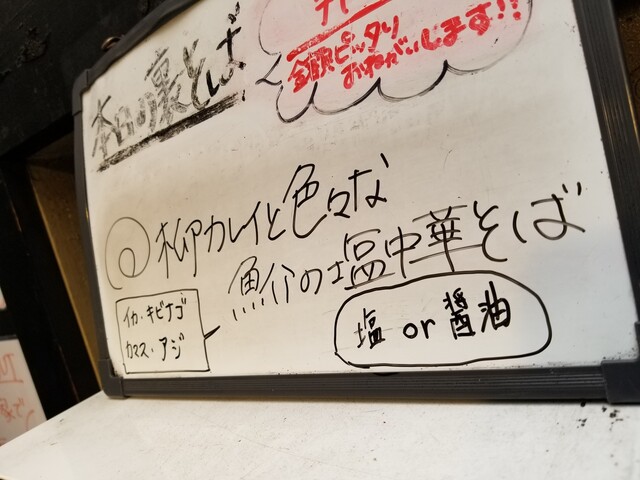 本日の裏そば
金額ピッタリ
おねがいします!!
柳カレイと色々な
魚介の塩中華そば
イカ・キビナゴ
カマス・アジ
塩 or 醤油